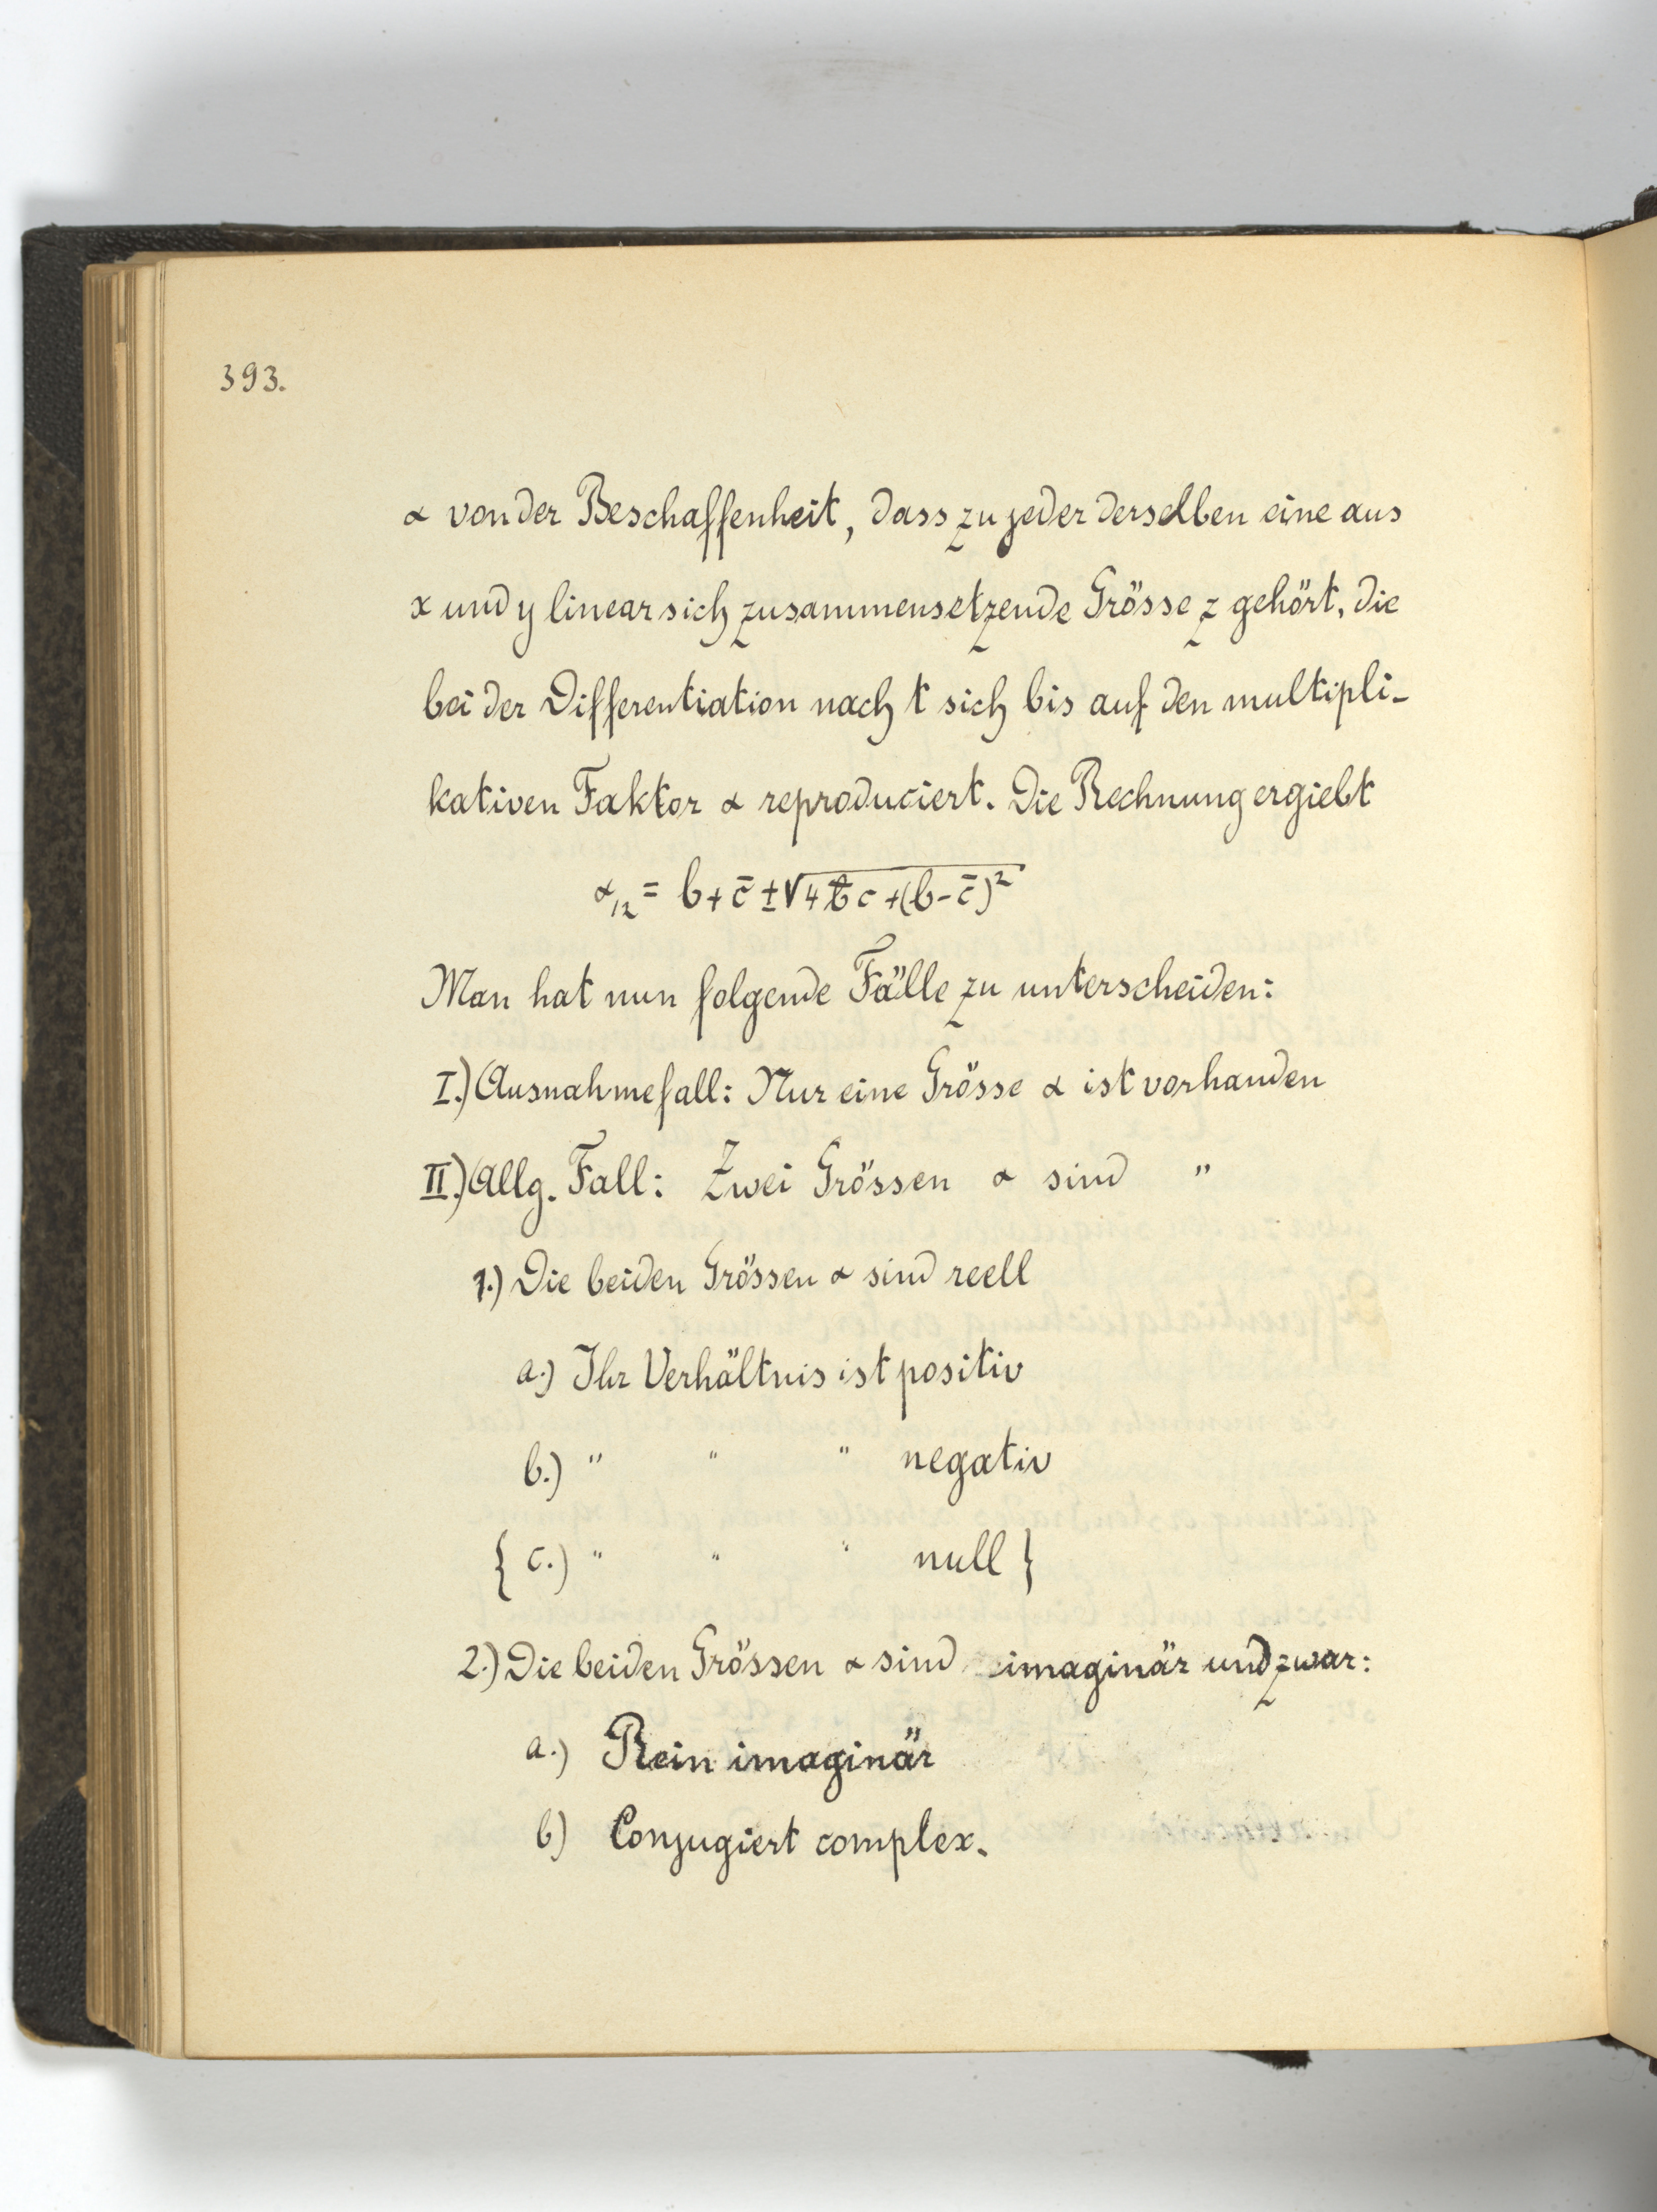 393.
α von der Beschaffenheit, dass zu jeder derselben eine aus
x und y linear sich zusammensetzende Grösse z gehört, die
bei der Differentiation nach t sich bis auf den multipli-
kativen Faktor α reproduciert. Die Rechnung ergiebt
α₁₂ = b + c̄ ± √4 b̄ c + (b - c̄)²
Man hat nun folgende Fälle zu unterscheiden:
I.) Ausnahmefall: Nur eine Grösse α ist vorhanden
II.) Allg. Fall: Zwei Grössen α sind "
1.) Die beiden Grössen α sind reell
a.) Ihr Verhältnis ist positiv
b.) " " " negativ
{ c.) " " " null }
2.) Die beiden Grössen α sind imaginär und zwar:
a.) Rein imaginär
b) Conjugiert complex.